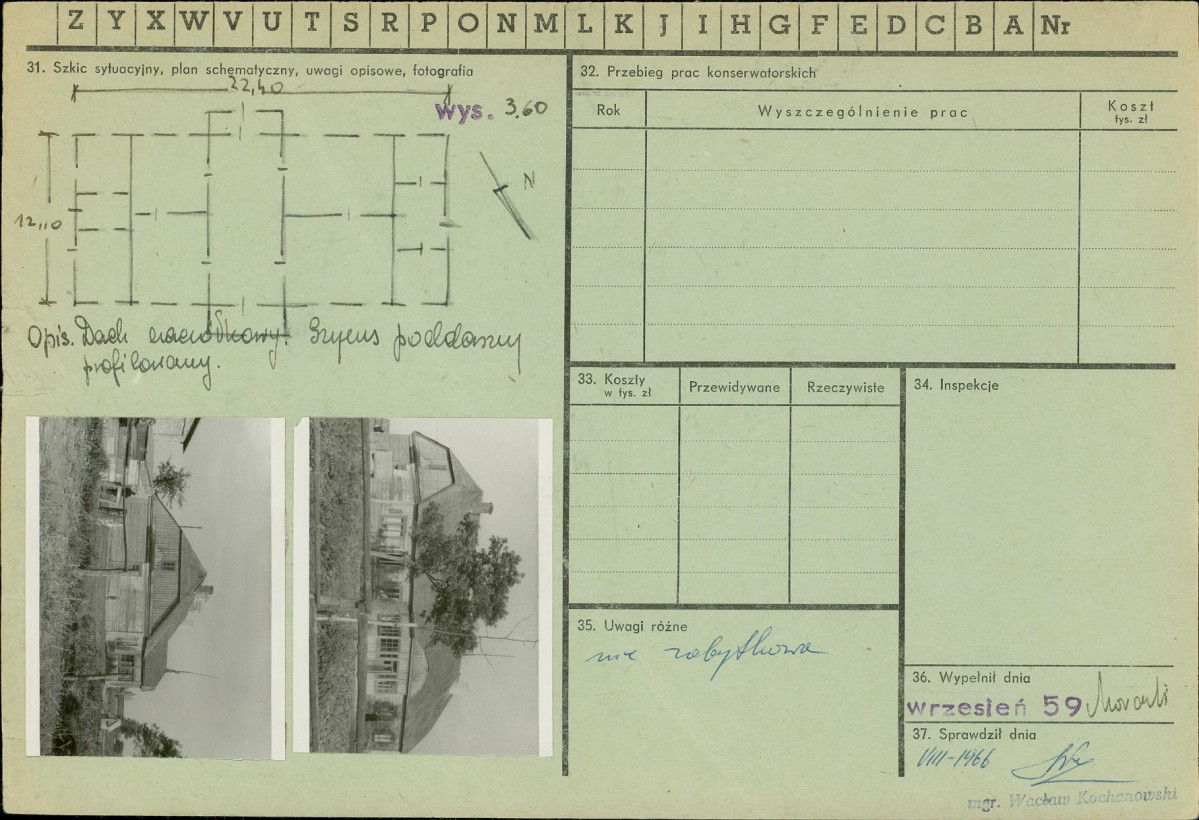 Z Y X W V U T S R P O N M L K J I H G F E D C B A Nr
31. Szkic sytuacyjny, plan schematyczny, uwagi opisowe, fotografia
22,40
wys. 3.60
N
12,10
Opis. Dach naczółkowy. Gzyms poddaszny
profilowany.
32. Przebieg prac konserwatorskich
Rok
Wyszczególnienie prac
Koszt
tys. zł
33. Koszty
w tys. zł
Przewidywane
Rzeczywiste
34. Inspekcje
35. Uwagi różne
nie zabytkowa
36. Wypełnił dnia
wrzesień 59
37. Sprawdził dnia
VIII-1966
mgr. Wacław Kochanowski